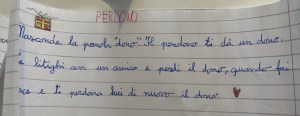 PERDONO
Nasconde la parola "dono". Il perdono ti dà un dono.
litighi con un amico e perdi il dono, quando fai
e ti perdona hai di nuovo il dono